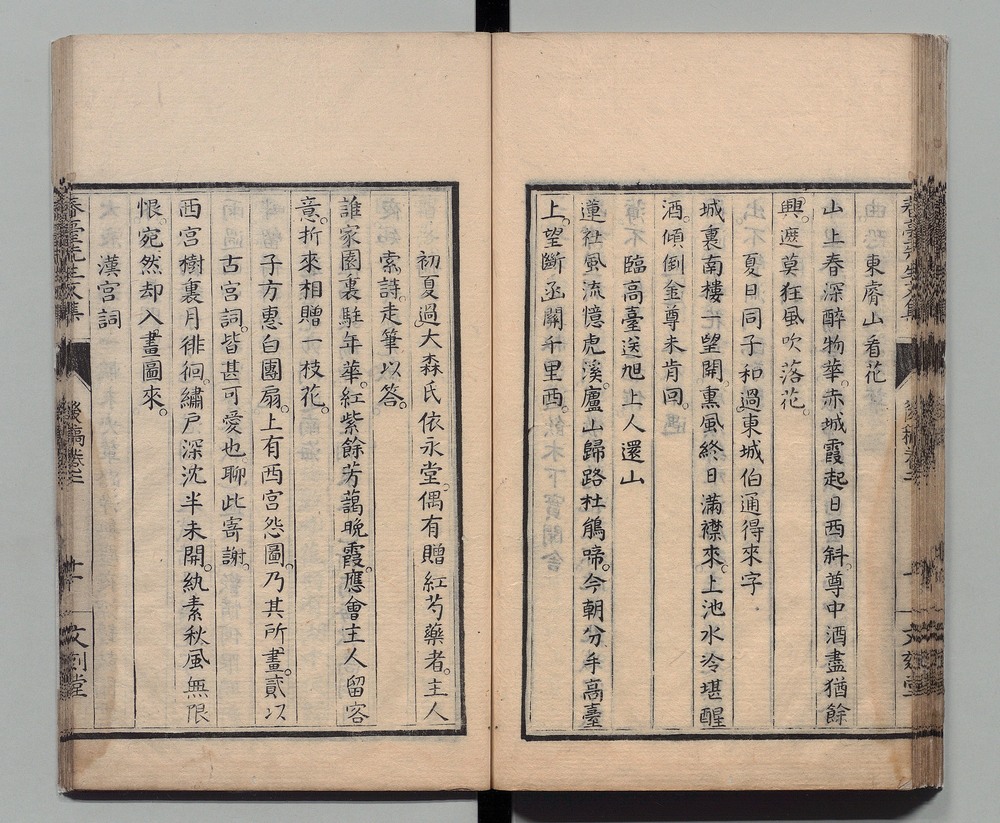 東睿山看花
山上春深醉物華。赤城霞起日西斜。尊中酒盡猶餘
興。遮莫狂風吹落花。
夏日同子和過東城伯通得來字
城裏南樓望開。熏風終日滿襟來。上池水冷堪醒
酒。傾倒金尊未肯回。
臨高臺送旭上人還山
蓮社風流憶虎溪。廬山歸路杜鵑啼。今朝分手高臺
上。望斷函關千里西。
初夏過大森氏依永堂。偶有贈紅芍藥者。主人
索詩。走筆以答。
誰家園裏駐年華。紅紫餘芳藹晚霞。應會主人留客
意。折來相贈一枝花。
子方惠白團扇。上有西宮怨圖。乃其所畫。貳以
古宮詞。皆甚可愛也聊此寄謝。
西宮樹裏月徘徊。繡戶深沈半未開。紈素秋風無限
恨。宛然却入畫圖來。
漢宮詞
春臺先生文集
後稿卷三
文刻堂